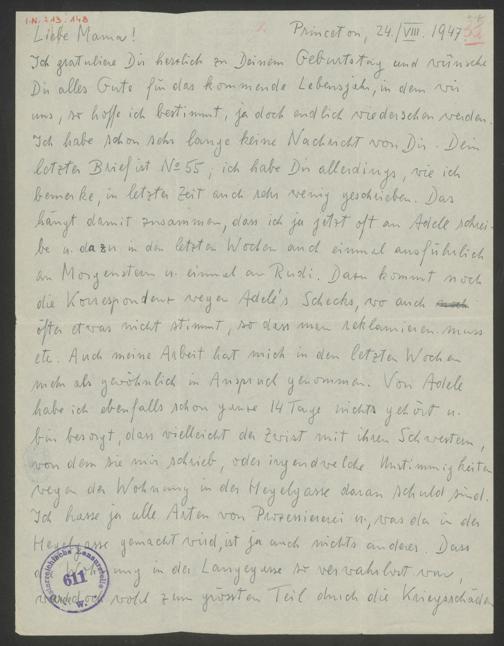 I.N. 213.148
Liebe Mama! Princeton, 24./VIII. 1947
Ich gratuliere Dir herzlich zu Deinem Geburtstag und wünsche
Dir alles Gute für das kommende Lebensjahr, in dem wir
uns, so hoffe ich bestimmt, ja doch endlich wiedersehen werden.
Ich habe schon sehr lange keine Nachricht von Dir. Dein
letzter Brief ist No 55; ich habe Dir allerdings, wie ich
bemerke, in letzter Zeit auch sehr wenig geschrieben. Das
hängt damit zusammen, dass ich ja jetzt oft an Adele schrei-
be u. dazu in den letzten Wochen auch einmal ausführlich
an Morgenstern u. einmal an Rudi. Dazu kommt noch
die Korrespondenz wegen Adele's Schecks, wo auch
öfter etwas nicht stimmt, so dass man reklamieren muss
etc. Auch meine Arbeit hat mich in den letzten Wochen
mehr als gewöhnlich in Anspruch genommen. Von Adele
habe ich ebenfalls schon ganze 14 Tage nichts gehört u.
bin besorgt, dass vielleicht der Zwist mit ihren Schwestern,
von dem sie mir schrieb, oder irgendwelche Unstimmigkeiten
wegen der Wohnung in der Hegelgasse daran schuld sind.
Ich hasse ja alle Arten von Prozessiererei u. was da in der
Hegelgasse gemacht wird, ist ja auch nichts anderes. Dass
die Wohnung in der Langegasse so verwahrlost war,
wohl zum grossten Teil durch die Kriegsschäden
611